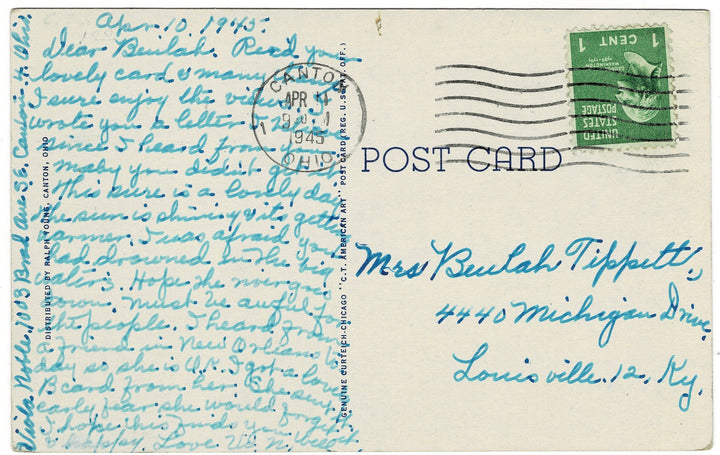 Apr. 10, 1945.
Dear Beulah. Recd your
lovely card & many
I sure enjoy the views. I
wrote you a letter
since I heard from
maby you didn't get it.
This sure is a lovely day
the sun is shining & its getting
warmer. I was afraid you
had drowned in the big
waters. Hope the river goes
down. Must be awful for
the people. I heard from
a friend in New Orleans to
day so she is O.K. I got a lovely
B card from her. She sent
early fear she would forget it
I hope this finds you well
& happy. Love
Viola Noble. 1013 Bond Ave S.E. Canton, Ohio.
DISTRIBUTED BY RALPH YOUNG, CANTON, OHIO
GENUINE CURTEICH-CHICAGO "C.T. AMERICAN ART" POST CARD (REG. U.S. PAT. OFF.)
CANTON
APR 11
1945
OHIO
1 CENT 1
UNITED
STATES
POSTAGE
POST CARD
Mrs Beulah Tippett,
4440 Michigan Drive.
Louisville. 12. Ky.